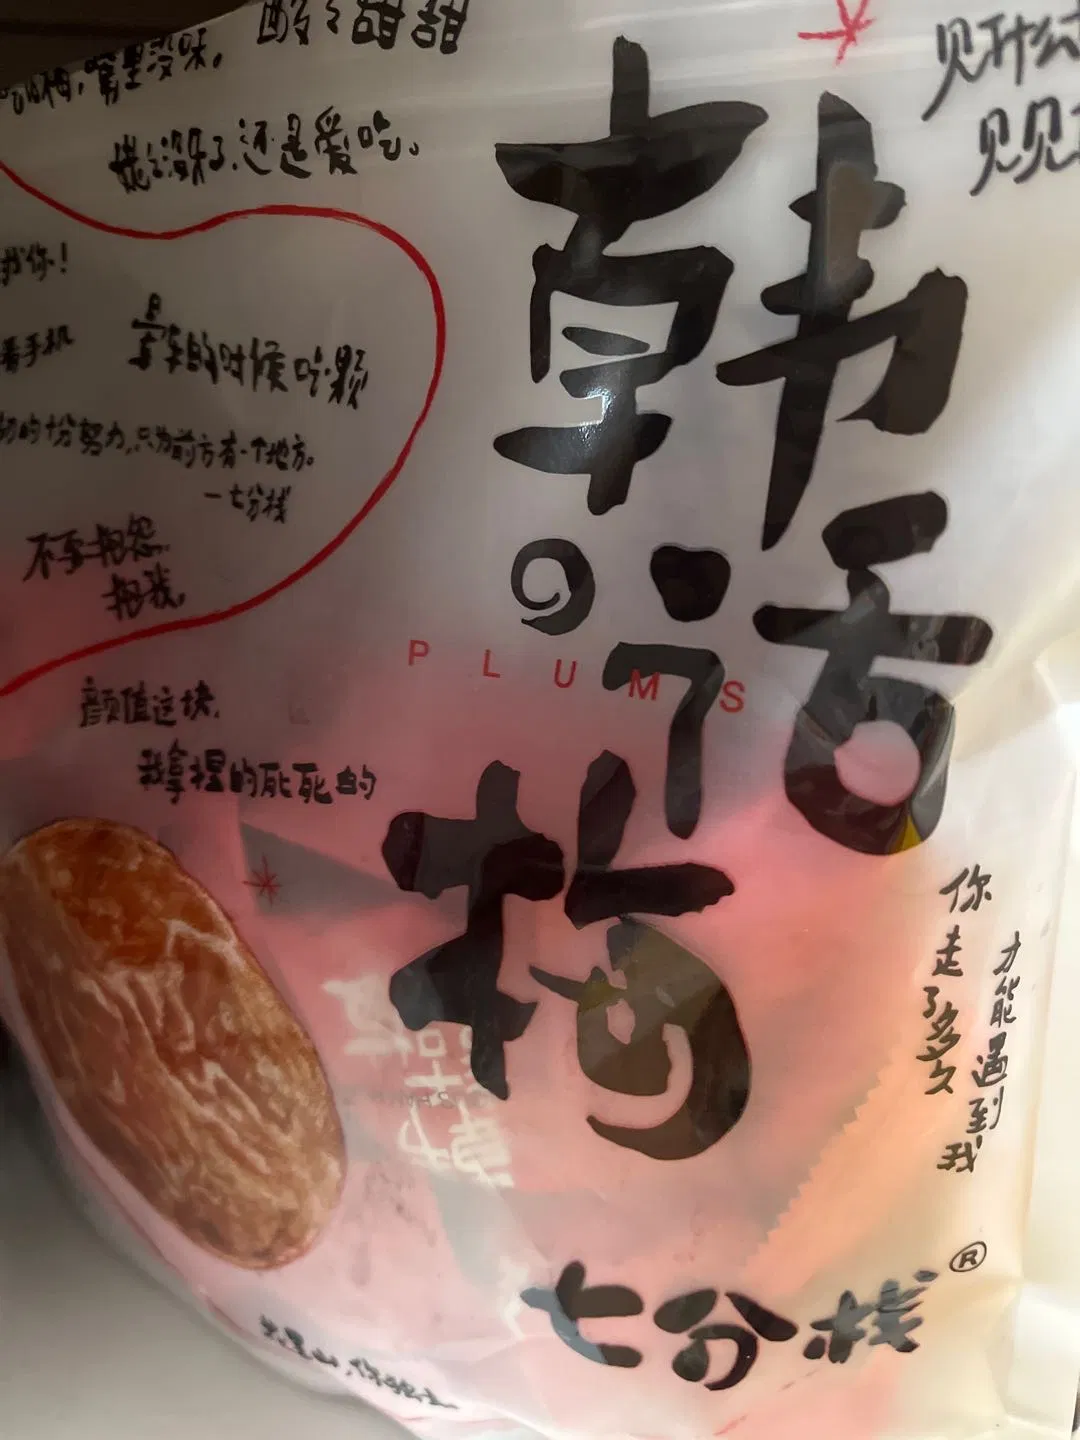 酸酸甜甜
嘴里没味。
掉了没牙了,还是爱吃。
找你!
看手机
晕车的时候吃颗
初的十分努力,只为前方有一个地方。
一七分栈
不要抱怨
抱我。
颜值这块,
我拿捏的死死的
韩话梅
PLUMS
见什么
见见
你走了多久
才能遇到我
七分栈®